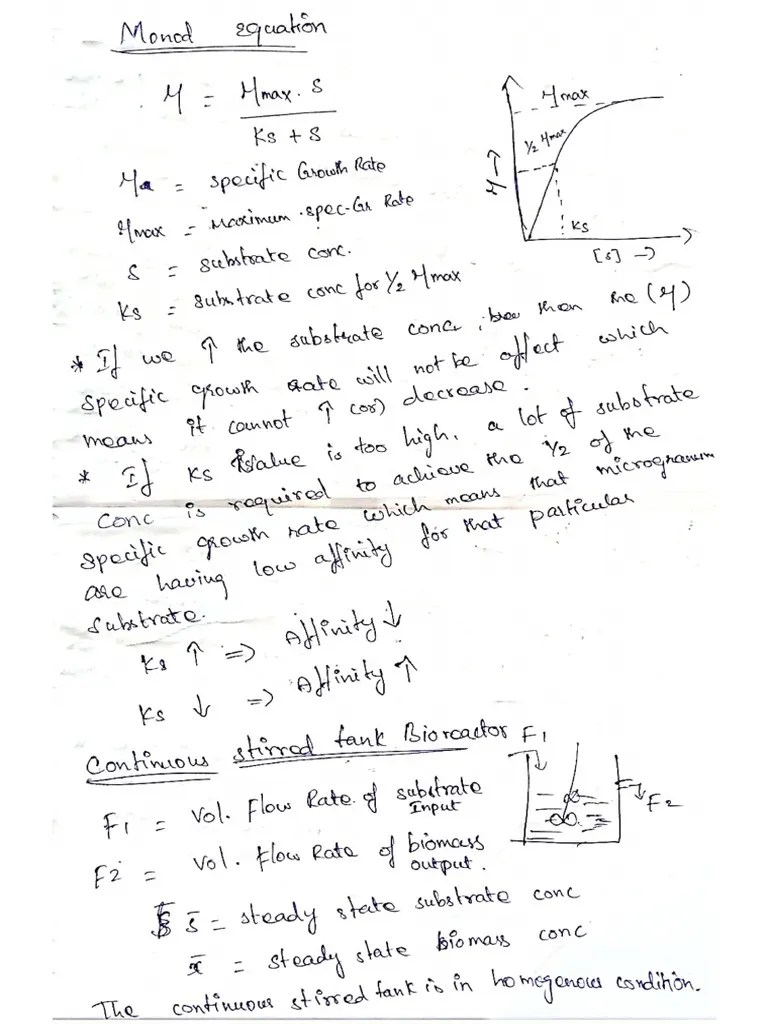 Monod equation
μ = μmax . S
Ks + S
μmax
1/2 μmax
μ →
Ks
[s] →
μ = specific Growth Rate
μmax = Maximum spec-Gr Rate
S = substrate conc.
Ks = substrate conc for 1/2 μmax
* If we ↑ the substrate conc, then the (μ)
specific growth rate will not be affect which
means it cannot ↑ (or) decrease.
* If Ks value is too high, a lot of substrate
conc is required to achieve the 1/2 of the
specific growth rate which means that microganism
are having low affinity for that particular
substrate.
Ks ↑ => Affinity ↓
Ks ↓ => Affinity ↑
Continuous stirred tank Bioreactor
F1
F2
F1 = Vol. Flow Rate of substrate Input
F2 = Vol. Flow Rate of biomass output.
s̄ = steady state substrate conc
x̄ = steady state biomass conc
The continuous stirred tank is in homogenous condition.